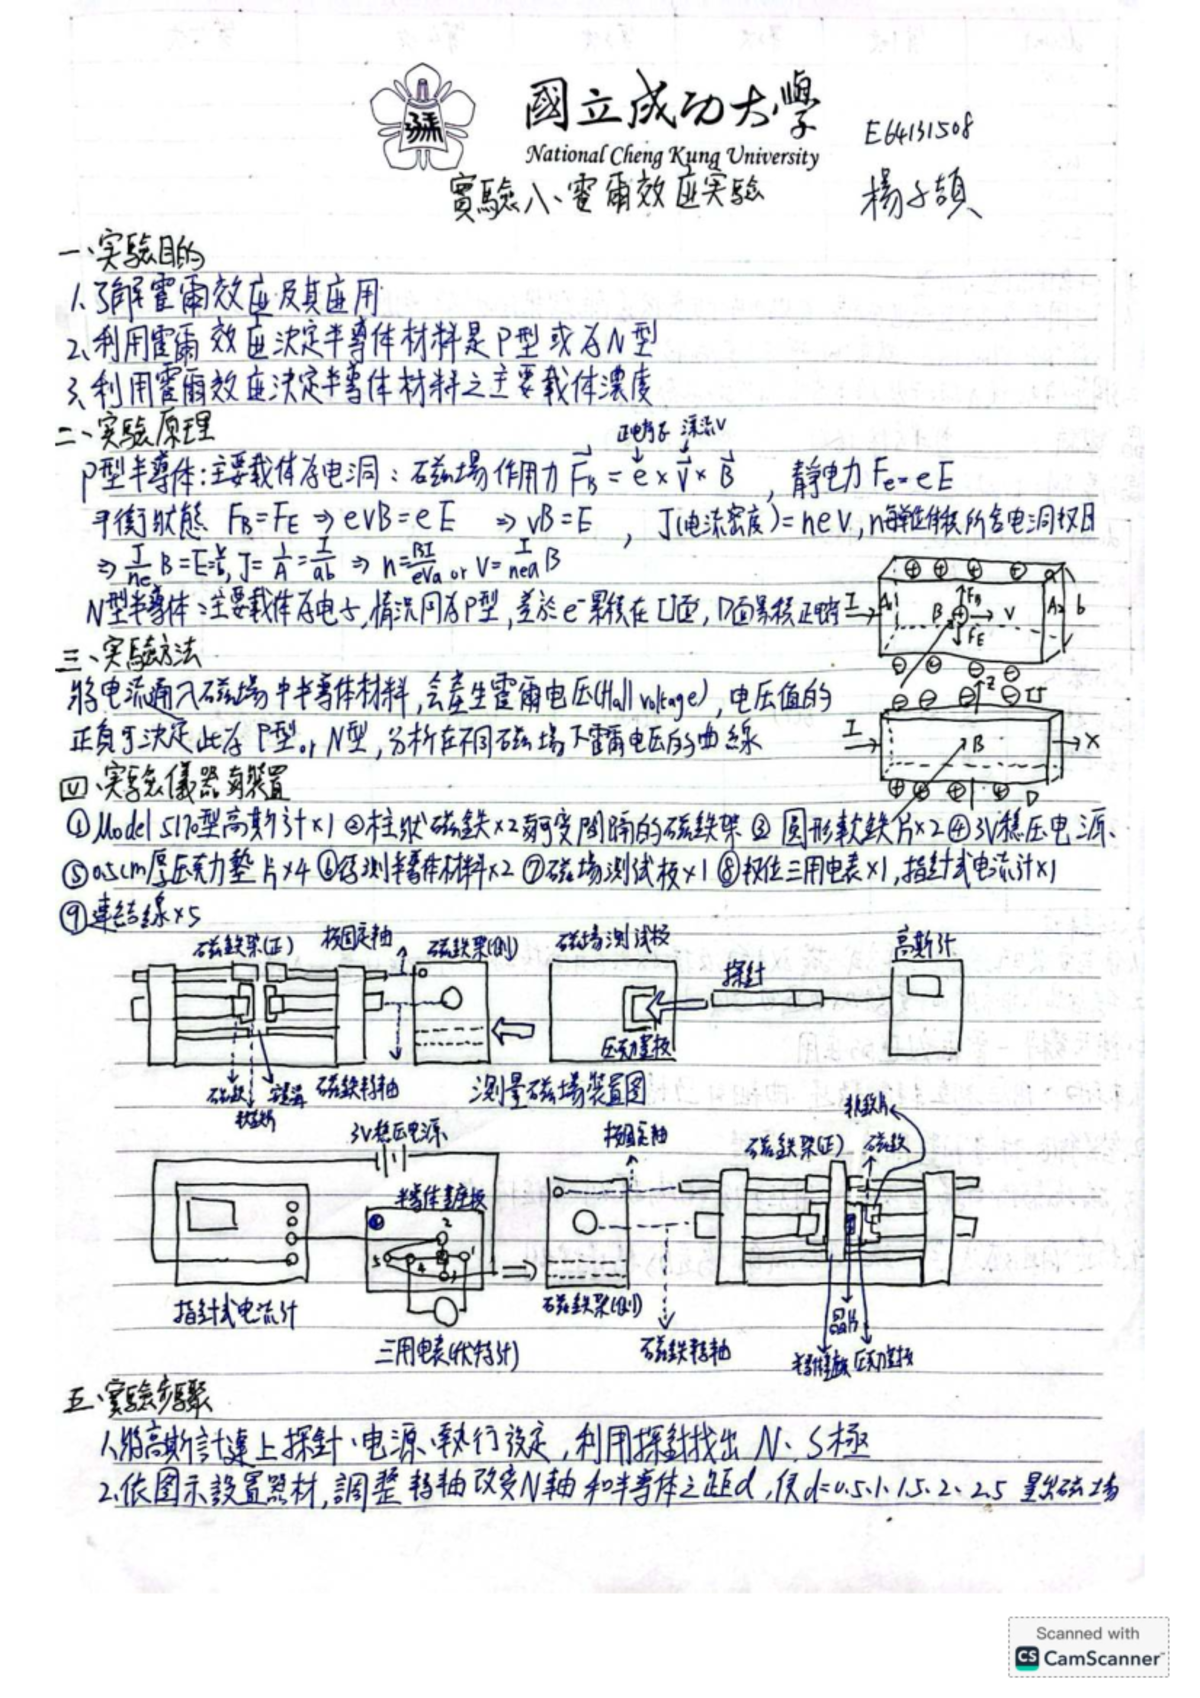 國立成功大學
National Cheng Kung University
E64131508
實驗八、霍爾效应实驗
楊子頡
一、实驗目的
1、了解霍爾效应及其应用
2、利用霍爾效应決定半導体材料是P型或为N型
3、利用霍爾效应決定半導体材料之主要載体濃度
二、实驗原理
正电荷 漂流V
P型半導体:主要載体为电洞:磁場作用力 F_B = e × v × B , 靜电力 Fe = eE
平衡狀態 F_B = F_E ⇒ evB = eE ⇒ vB = E , J(电流密度) = nev, n每單位体积所含电洞數目
⇒ J/ne B = E = V/b, J = I/A = I/ab ⇒ n = BI/eVa or V = I/nea B
N型半導体:主要載体为电子,情況同为P型,差於e⁻累積在U面,D面累積正电荷
I A₁ B F_B V F_E A₂ a b
三、实驗方法
將电流通入磁場中半導体材料,会產生霍爾电压(Hall voltage),电压值的
正負可決定此为P型or N型,分析在不同磁場下霍爾电压的曲線
I Z U B X D
四、实驗儀器與裝置
①Model 5170型高斯計×1 ②柱狀磁鉄×2與可变間隔的磁鉄架 ③圓形軟鉄片×2 ④3V穩压电源、
⑤0.5cm厚压克力墊片×4 ⑥待測半導体材料×2 ⑦磁場測試板×1 ⑧数位三用电表×1,指針式电流計×1
⑨連結線×5
磁鉄架(正) 板固定軸 磁鉄架(側) 磁場測試板 高斯計
探針
压克力墊板
磁鉄 軟鉄片 磁鉄轉軸 測量磁場裝置図
軟鉄片
3V穩压电源 板固定軸 磁鉄架(正) 磁鉄
半導体基座板
2
5 4 1
3
指針式电流計 磁鉄架(側)
晶片
三用电表(伏特計) 磁鉄轉軸
五、实驗步驟
1、將高斯計連上探針、电源、執行設定,利用探針找出N、S極
2、依図示設置器材,調整轉軸改变N軸和半導体之距d,使d=0.5、1、1.5、2、2.5 量出磁場
Scanned with
CS CamScanner